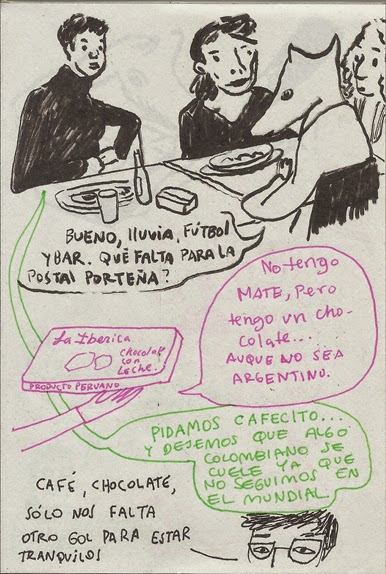 BUENO, lluvia, FÚTBOL
Y BAR. QUÉ FALTA PARA LA
POSTAL PORTEÑA?
No tengo
MATE, Pero
tengo un cho-
colate...
AUQUE NO SEA
ARGENTINO.
La Iberica
chocolate
con
LECHE.
PRODUCTO PERUANO
PIDAMOS CAFECITO...
Y DEJEMOS QUE ALGO
COLOMBIANO SE
CUELE YA QUE
NO SEGUIMOS EN
EL MUNDIAL
CAFÉ, CHOCOLATE,
SÓLO NOS FALTA
OTRO GOL PARA ESTAR
TRANQUILOS